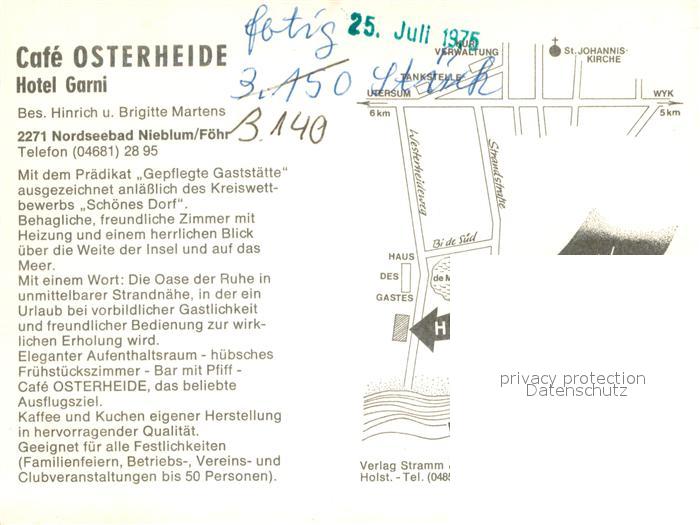 fotig
25. Juli 1975
3.150 Stück
3.140
Café OSTERHEIDE
Hotel Garni
Bes. Hinrich u. Brigitte Martens
2271 Nordseebad Nieblum/Föhr
Telefon (04681) 28 95
Mit dem Prädikat „Gepflegte Gaststätte"
ausgezeichnet anläßlich des Kreiswett-
bewerbs „Schönes Dorf".
Behagliche, freundliche Zimmer mit
Heizung und einem herrlichen Blick
über die Weite der Insel und auf das
Meer.
Mit einem Wort: Die Oase der Ruhe in
unmittelbarer Strandnähe, in der ein
Urlaub bei vorbildlicher Gastlichkeit
und freundlicher Bedienung zur wirk-
lichen Erholung wird.
Eleganter Aufenthaltsraum - hübsches
Frühstückszimmer - Bar mit Pfiff -
Café OSTERHEIDE, das beliebte
Ausflugsziel.
Kaffee und Kuchen eigener Herstellung
in hervorragender Qualität.
Geeignet für alle Festlichkeiten
(Familienfeiern, Betriebs-, Vereins- und
Clubveranstaltungen bis 50 Personen).
KUR-
VERWALTUNG
St. JOHANNIS-
KIRCHE
TANKSTELLE
UTERSUM
WYK
6 km
5 km
Westerheideweg
Strandstraße
Bi de Süd
HAUS
DES
GASTES
de M
H
privacy protection
Datenschutz
Verlag Stramm
Holst. - Tel. (048